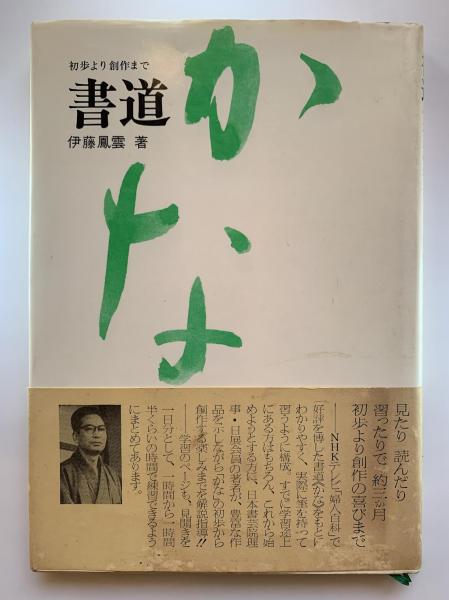 初歩より創作まで
書道
かな
伊藤鳳雲 著
見たり 読んだり
習ったりで 約三か月
初歩より創作の喜びまで
――NHKテレビ「婦人百科」で
好評を博した書道〈かな〉をもとに
わかりやすく、実際に筆を持って
習うように構成。すでに学習途上
にある方はもちろん、これから始
めようとする方に、日本書芸院理
事・日展会員の著者が、豊富な作
品を示しながら“かな”の初歩から
創作する楽しみまでを解説指導!!
――学習のページも、見開きを
一日分として、一時間から一時間
半くらいの時間で練習できるよう
にまとめてあります。